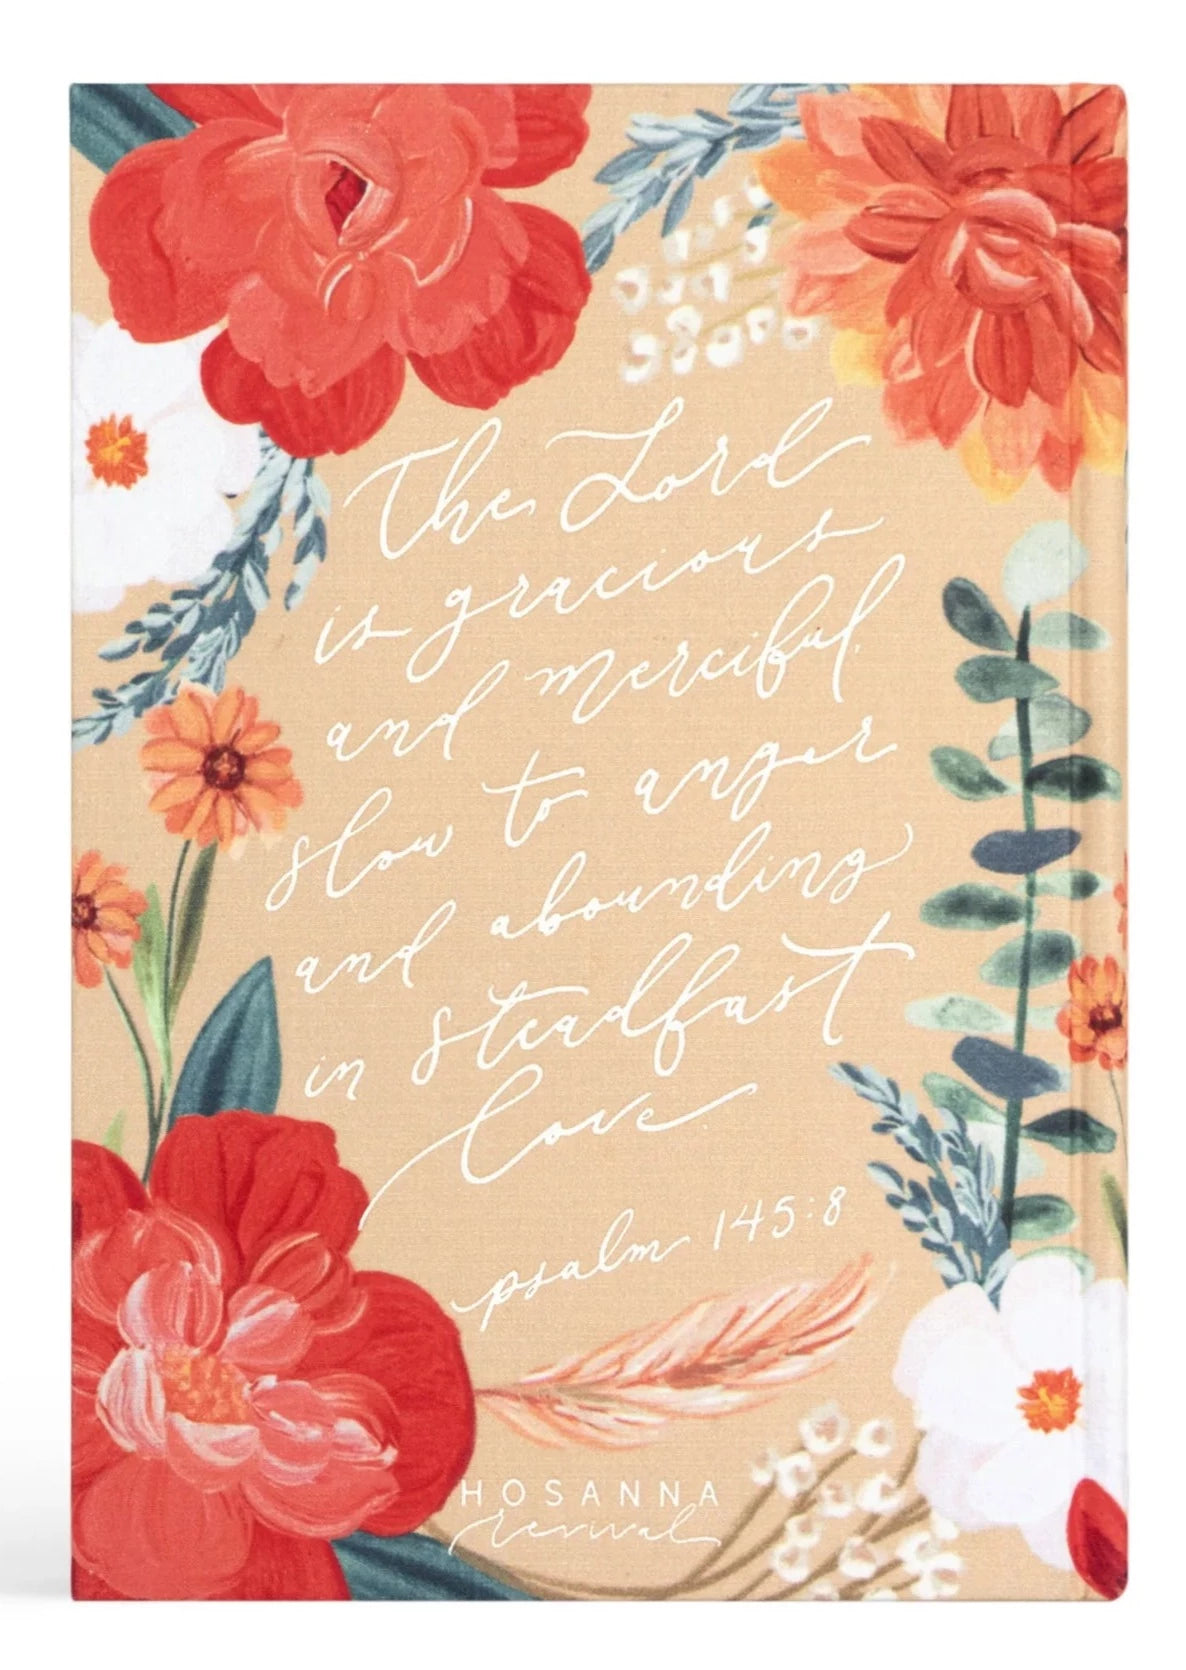 The Lord
is gracious
and merciful,
slow to anger
and abounding
in steadfast
love.
psalm 145:8
HOSANNA
revival